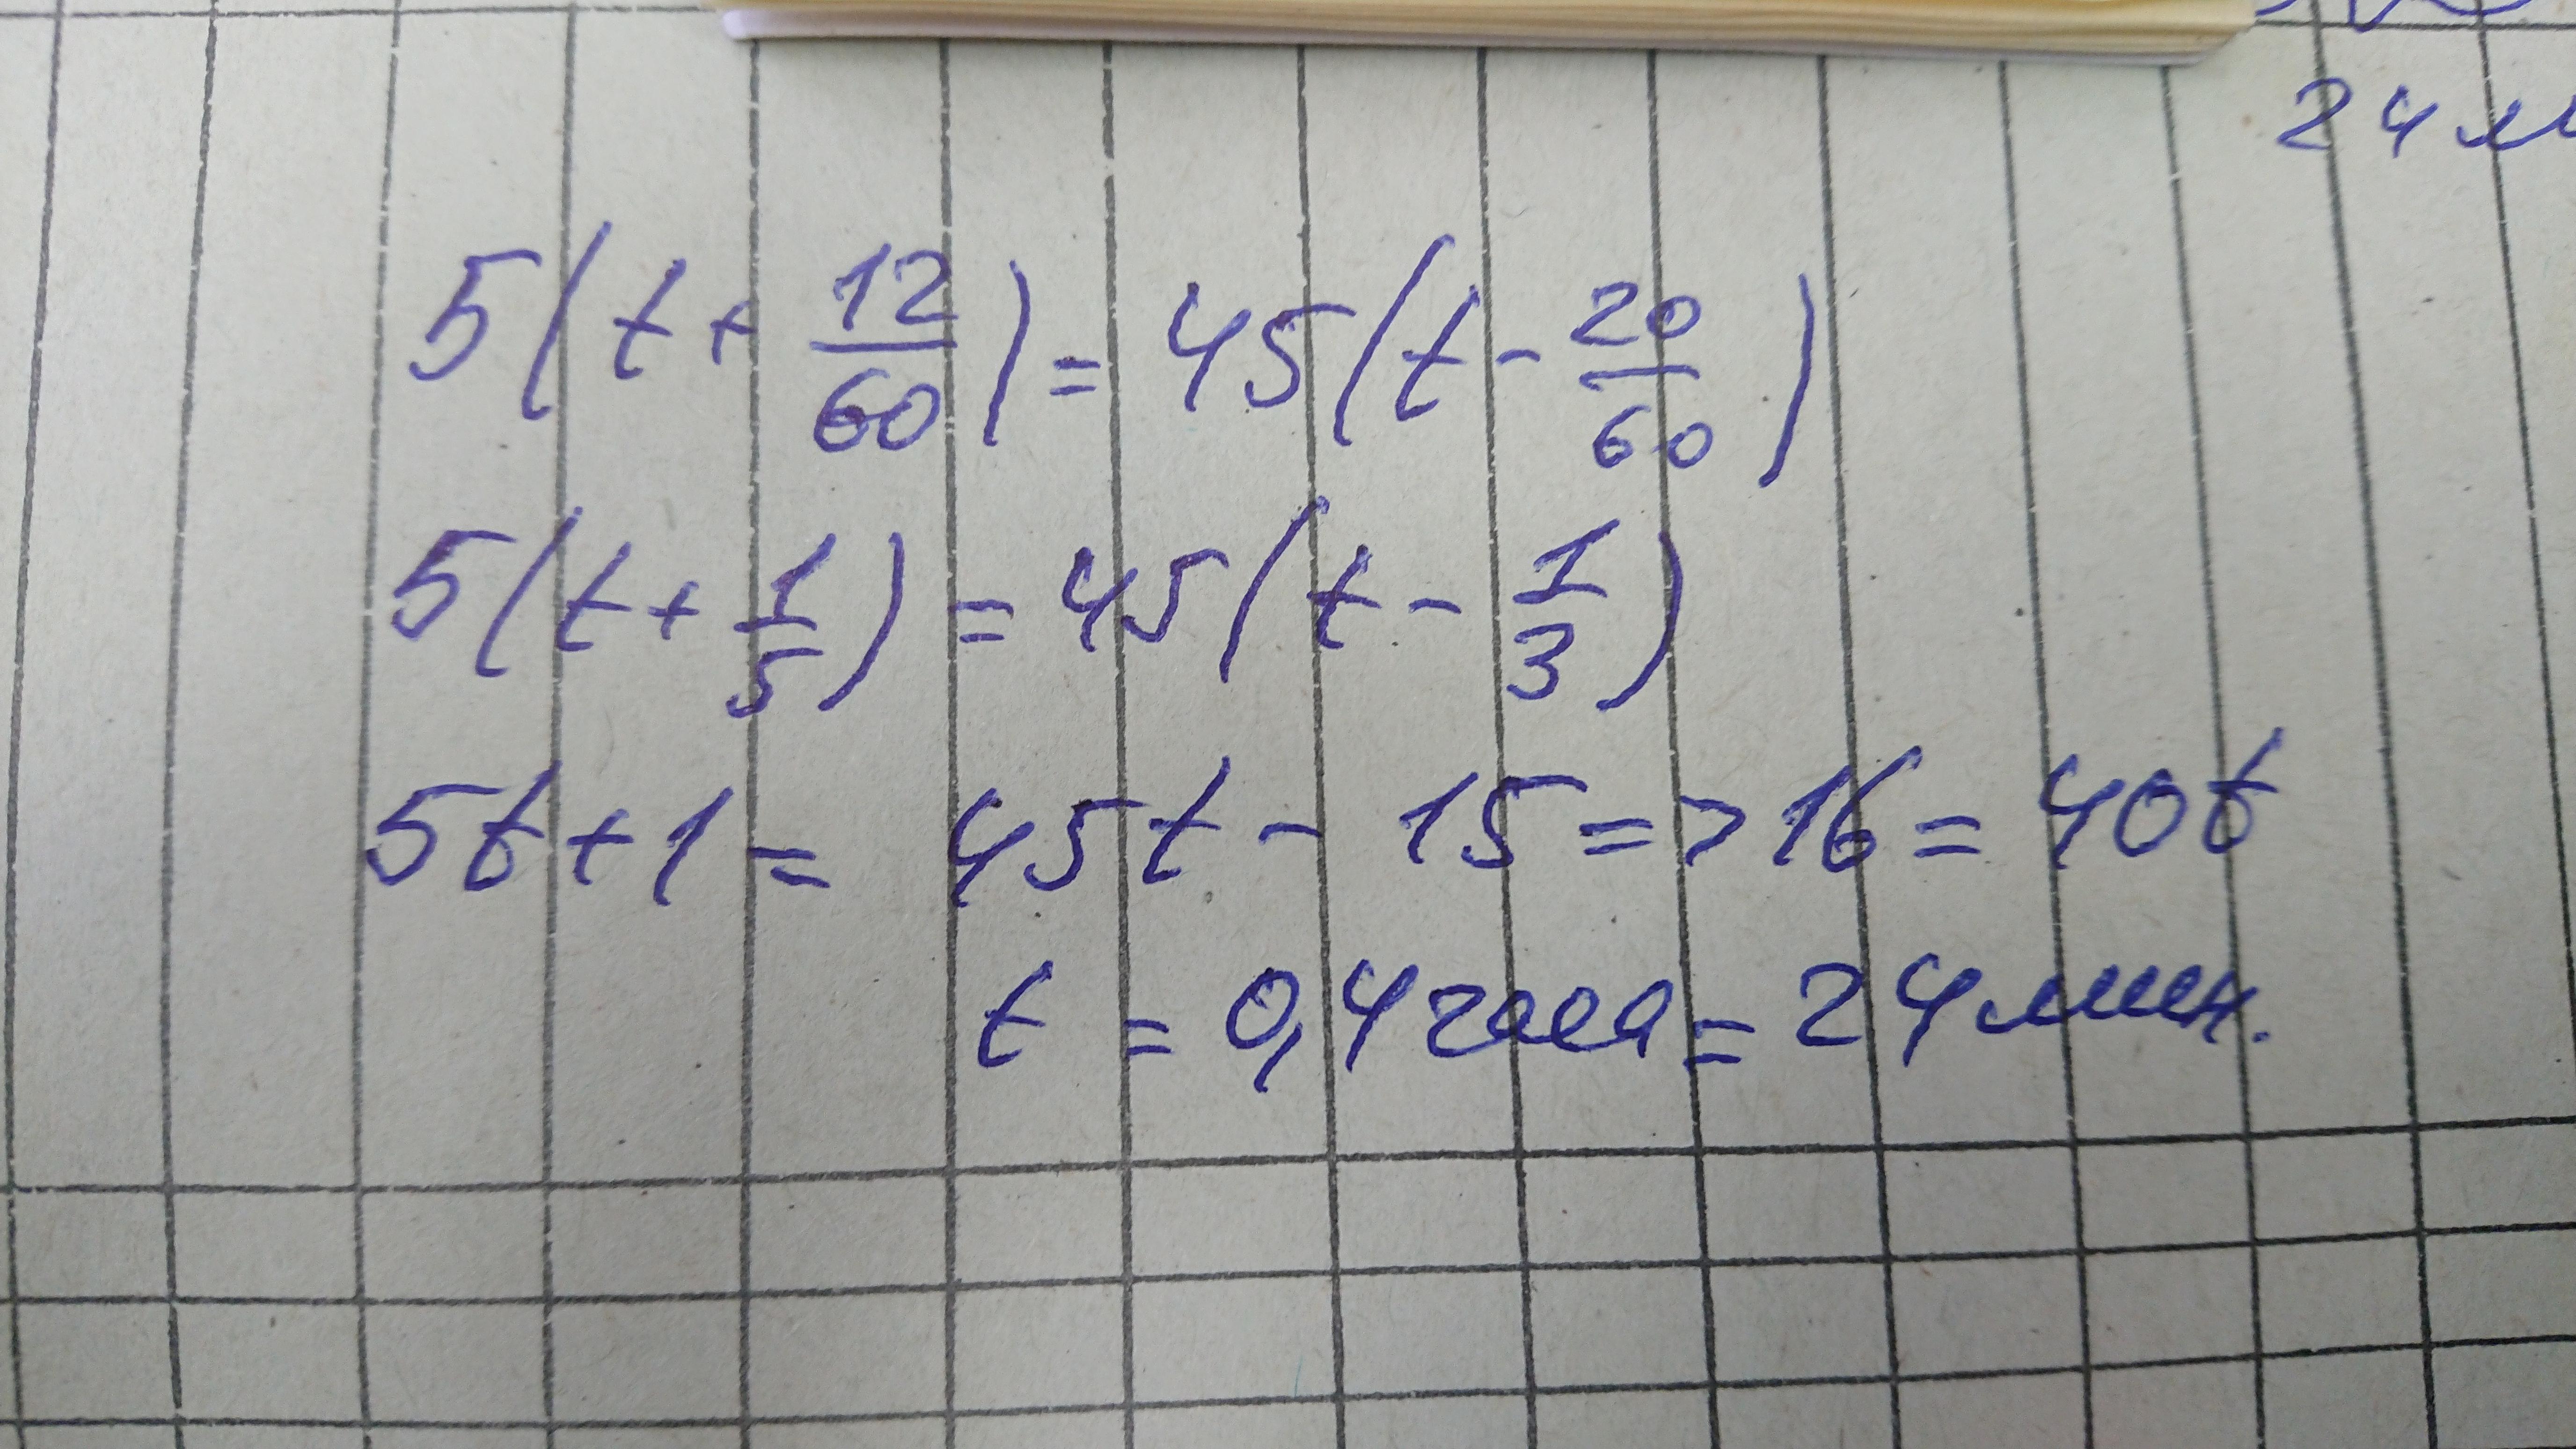 24 м
5(t + 12/60) = 45(t - 20/60)
5(t + 1/5) = 45(t - 1/3)
5t + 1 = 45t - 15 => 16 = 40t
t = 0,4 часа = 24 мин.